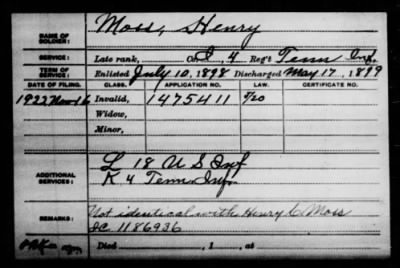 NAME OF SOLDIER: Moss, Henry
SERVICE: Late rank, Co. I, 4 Reg't Tenn Inf.
TERM OF SERVICE: Enlisted July 10, 1898 Discharged May 17, 1899
DATE OF FILING. CLASS. APPLICATION NO. LAW. CERTIFICATE NO.
1922 Nov 16 Invalid, 1475411
Widow,
Minor,
ADDITIONAL SERVICES: L 18 U S Inf
K 4 Tenn Inf.
REMARKS: Not identical with Henry C Moss
1186936
Died , 1 , at